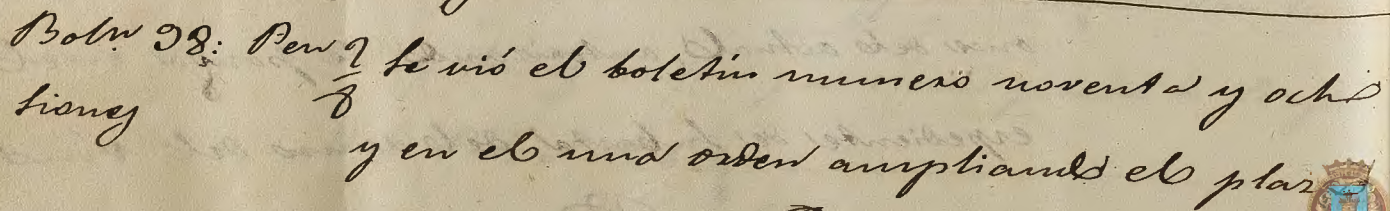 Boln. 98: Pen
siones
Se vió el boletin numero noventa y ocho
y en el una orden ampliando el plazo